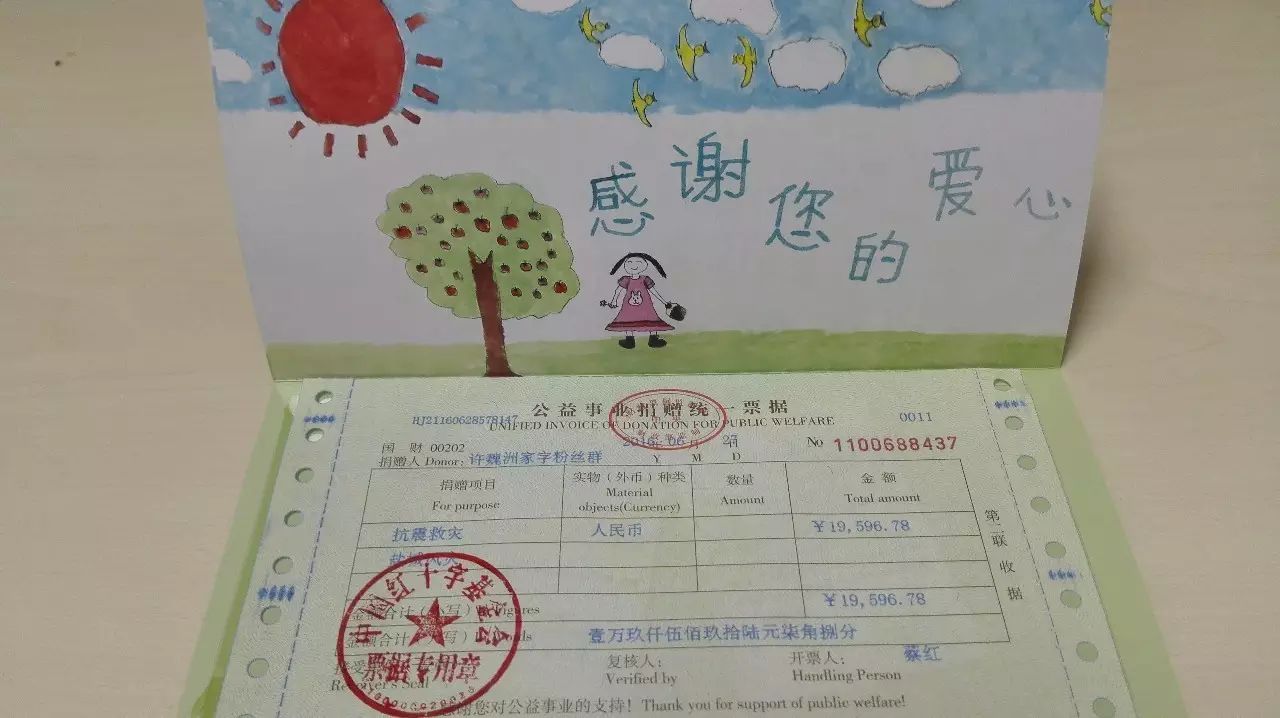 感谢您的爱心
公益事业捐赠统一票据
HJ21160628578147
UNIFIED INVOICE OF DONATION FOR PUBLIC WELFARE
0011
国 财 00202
Y M D
No 1100688437
捐赠人 Donor: 许魏洲家字粉丝群
捐赠项目 For purpose
实物（外币）种类 Material objects(Currency)
数量 Amount
金 额 Total amount
抗震救灾 人民币 ￥19,596.78
￥19,596.78
壹万玖仟伍佰玖拾陆元柒角捌分
第二联 收据
中国红十字基金会
票据专用章
复核人： Verified by
开票人： Handling Person
蔡红
感谢您对公益事业的支持！Thank you for support of public welfare!